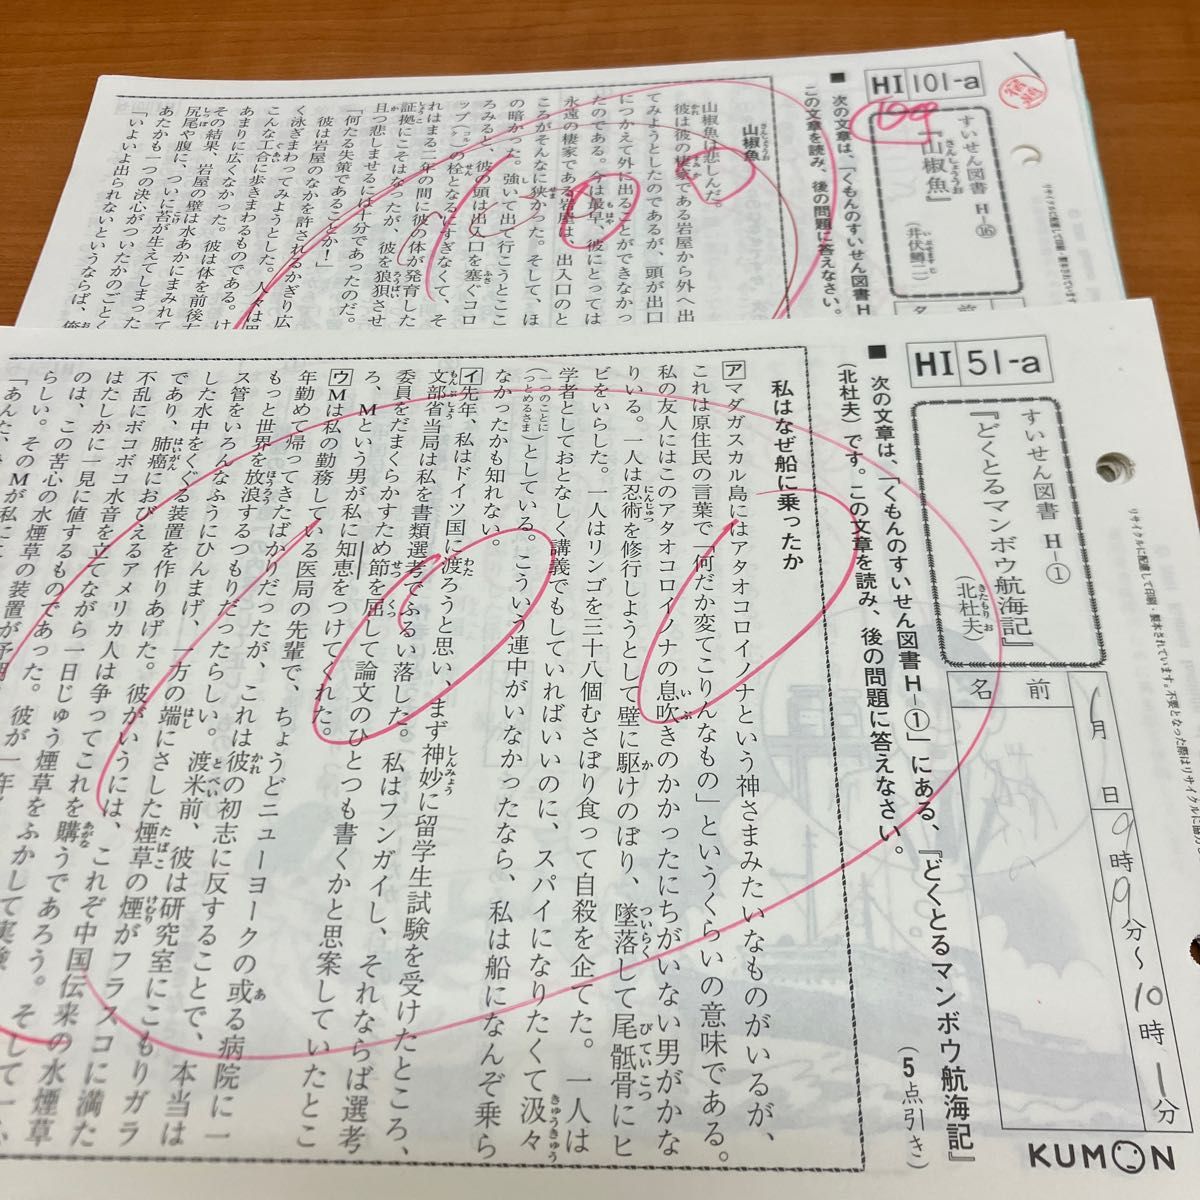 HI 101-a
すいせん図書 H-⑯
『山椒魚』
さんしょううお
(井伏鱒二)
いぶせますじ
100
■ 次の文章は、「くもんのすいせん図書H
この文章を読み、後の問題に答えなさい。
山椒魚
さんしょううお
山椒魚は悲しんだ。
彼は彼の棲家である岩屋から外へ出
てみようとしたのであるが、頭が出口
につかえて外に出ることができなかっ
たのである。今は最早、彼にとっては
永遠の棲家である岩屋は、出入口のと
ころがそんなに狭かった。そして、ほ
の暗かった。強いて出て行こうとここ
ろみると、彼の頭は出入口を塞ぐコロ
ップの栓となるにすぎなくて、そ
れはまる二年の間に彼の体が発育した
証拠にこそはなったが、彼を狼狽させ
且つ悲しませるには十分であったのだ。
「何たる失策であることか!」
彼は岩屋のなかを許されるかぎり広
く泳ぎまわってみようとした。人々は思
こんな工合に歩きまわるものである。け
あまりに広くなかった。彼は体を前後左
その結果、岩屋の壁は水あかにまみれて
尻尾や腹に、ついに苔が生えてしまった
あたかも一つの決心がついたかのごとく
「いよいよ出られないというならば、俺
HI 51-a
すいせん図書 H-①
『どくとるマンボウ航海記』
(北杜夫)
きたもりお
名前
1月1日
9時9分〜10時1分
KUMON
■ 次の文章は、「くもんのすいせん図書H-①」にある、『どくとるマンボウ航海記』
(北杜夫)です。この文章を読み、後の問題に答えなさい。
(5点引き)
私はなぜ船に乗ったか
ア マダガスカル島にはアタオコロイノナという神さまみたいなものがいるが、
これは原住民の言葉で「何だか変てこりんなもの」というくらいの意味である。
私の友人にはこのアタオコロイノナの息吹きのかかったにちがいない男がかな
りいる。一人は忍術を修行しようとして壁に駆けのぼり、墜落して尾骶骨にヒ
ビをいらした。一人はリンゴを三十八個むさぼり食って自殺を企てた。一人は
学者としておとなしく講義でもしていればいいのに、スパイになりたくて汲々
(一つのことにつとめるさま)としている。こういう連中がいなかったなら、私は船になんぞ乗ら
なかったかも知れない。
イ 先年、私はドイツ国に渡ろうと思い、まず神妙に留学生試験を受けたところ、
文部省当局は私を書類選考でふるい落した。私はフンガイし、それならば選考
委員をだまくらかすため節を屈して論文のひとつも書くかと思案していたとこ
ろ、Mという男が私に知恵をつけてくれた。
ウ Mは私の勤務している医局の先輩で、ちょうどニューヨークの或る病院に一
年勤めて帰ってきたばかりだったが、これは彼の初志に反することで、本当は
もっと世界を放浪するつもりだったらしい。渡米前、彼は研究室にこもりガラ
ス管をいろんなふうにひんまげ、一方の端にさした煙草の煙がフラスコに満た
した水中をくぐる装置を作りあげた。彼がいうには、これぞ中国伝来の水煙草
であり、肺癌におびえるアメリカ人は争ってこれを購うであろう。そして一
不乱にボコボコ水音を立てながら一日じゅう煙草をふかして実験
はたしかに一見に値するものであった。彼が一年
のは、この苦心の水煙草の装置が予期
らしい。そのMが私に
「あんた、